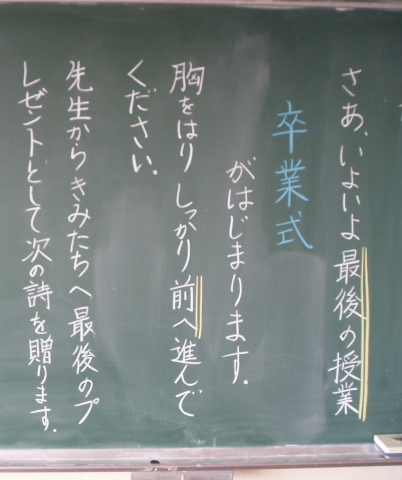 さあ、いよいよ最後の授業
卒業式
がはじまります。
胸をはりしっかり前へ進んで
ください。
先生からきみたちへ最後のプ
レゼントとして次の詩を贈ります。